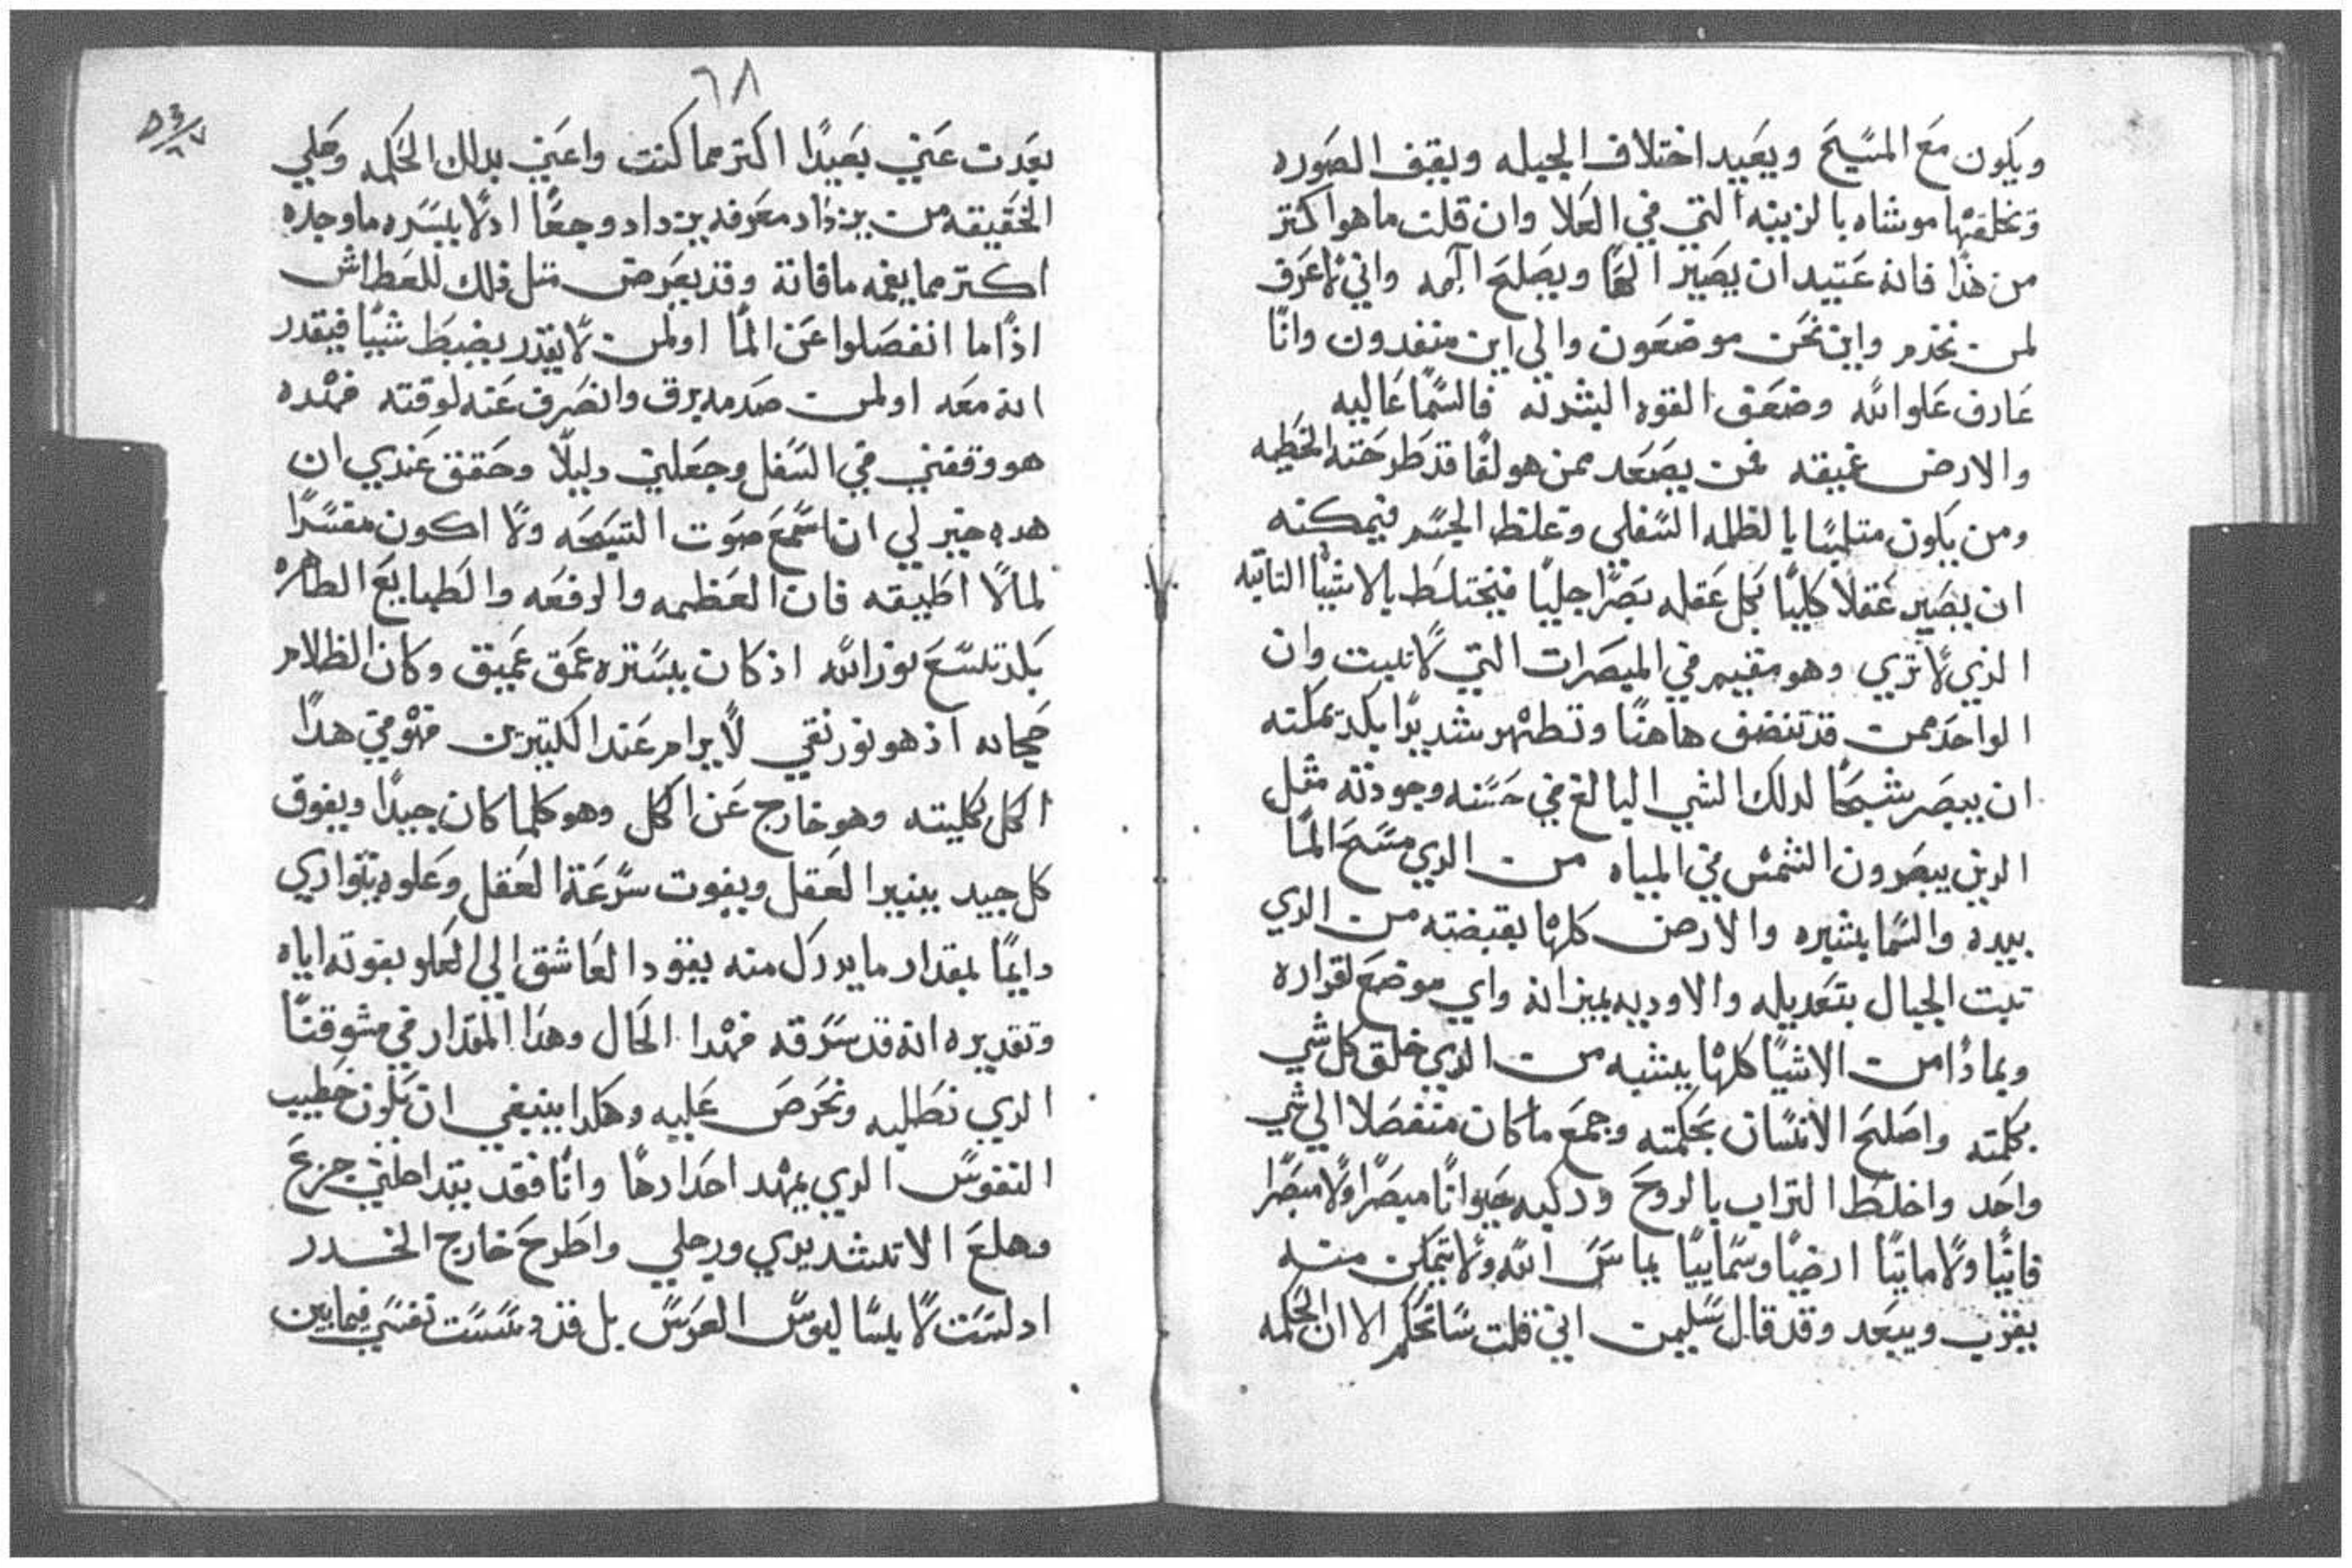 ويكون مع المسيح ويعيد اختلاف الجيله ويقيف الصوره
وتخلقتها موشاه بالزينه التي في العلا وان قلت ما هو اكتر
من هذا فانه عتيد ان يصير الها ويصلح الهه واني لاعرف
لمن نخدم واين نحن موضعون والي اين منفدون وانا
عارف علو الله وضعف القوه البشريه فالسما عاليه
والارض عميقه فمن يصعد ممن هو لقا قد طرحته الخطيه
ومن يكون متلبسا بالظلمه السفلي وغلظ الجسم فيمكنه
ان يصير عقلا كليا بكل عقله بصرا جليا فيختلط بالاشيا التابته
الذي لا تري وهو مقيم في المبصرات التي لا تلبت وان
الواحد ممن قد تنضف هاهنا وتطهر شديدا بكد يمكنه
ان يبصر شبحا لدلك الشي البالغ في حسنه وجودته متل
الدين يبصرون الشمس في المياه من الدي مسح الما
بيده والسما بشبره والارض كلها بقبضته من الدي
تبت الجبال بتعديله والاوديه بميزانه واي موضع لقراره
وبمادا من الاشيا كلها يشبه من الدي خلق كل شي
بكلمته واصلح الانسان بحكمته وجمع ما كان منفصلا الي شي
واحد واخلط التراب بالروح وركبه حيوانا مبصرا ولا مبصرا
فانيا ولا مايتا ارضيا وسماييا يماس الله ولا يتمكن منه
يقرب ويبعد وقد قال سليمن اني قلت ساتحكم الا ان الحكمه
٦٨
بعدت عني بعيدا اكتر مما كنت واعني بدلك الحكمه وعلي
الحقيقه من يزداد معرفه يزداد وجعا اد لا يسره ما وجده
اكتر مما يغمه ما فاته وقد يعرض متل دلك للعطاش
اذا ما انفصلوا عن الما او لمن لا يقدر يضبط شيا فيقدر
انه معه او لمن صدمه برق وانصرف عنه لوقته فهده
هو وقفني في السفل وجعلني دليلا وحقق عندي ان
هده خير لي ان اسمع صوت التسبحه ولا اكون مفسرا
لما لا اطيقه فان العظمه والرفعه والطبايع الطاهره
بكد تسع نور الله اذ كان يستره عمق عميق وكان الظلام
حجابه اذ هو نور نقي لا يرام عند الكتيرين فهو في هدا
الكل بكليته وهو خارج عن الكل وهو كلما كان جيدا ويفوق
كل جيد ينير العقل ويفوت سرعة العقل وعلوه يتواري
دايما بمقدار ما يدرك منه يقود العاشق الي العلو بفوته اياه
وتقديره انه قد سرقه فهدا الحال وهدا المقدار في مشوقنا
الدي نطلبه ونحرص عليه وهكدا ينبغي ان يكون خطيب
النفوس الدي يمهد اخدارها وانا فقد يتداخلني جزع
وهلع الا تشد يدي ورجلي واطرح خارج الخدر
اد لست لابسا لبوس العرس بل قد دسست نفسي فيما بين